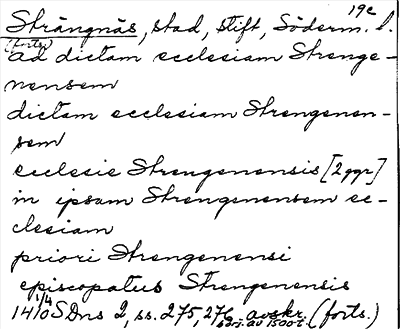 19c
Strängnäs, stad, stift, Söderm. l.
(forts.)
ad dictam ecclesiam Strenge-
nensem
dictam ecclesiam Strengenen-
sem
ecclesie Strengenensis [2 ggr]
in ipsam Strengenensem ec-
clesiam
priori Strengenensi
episcopatus Strengenensis
1/4
1410 SDns 2, ss. 275, 276, avskr. (forts.)
börj. av 1500-t.